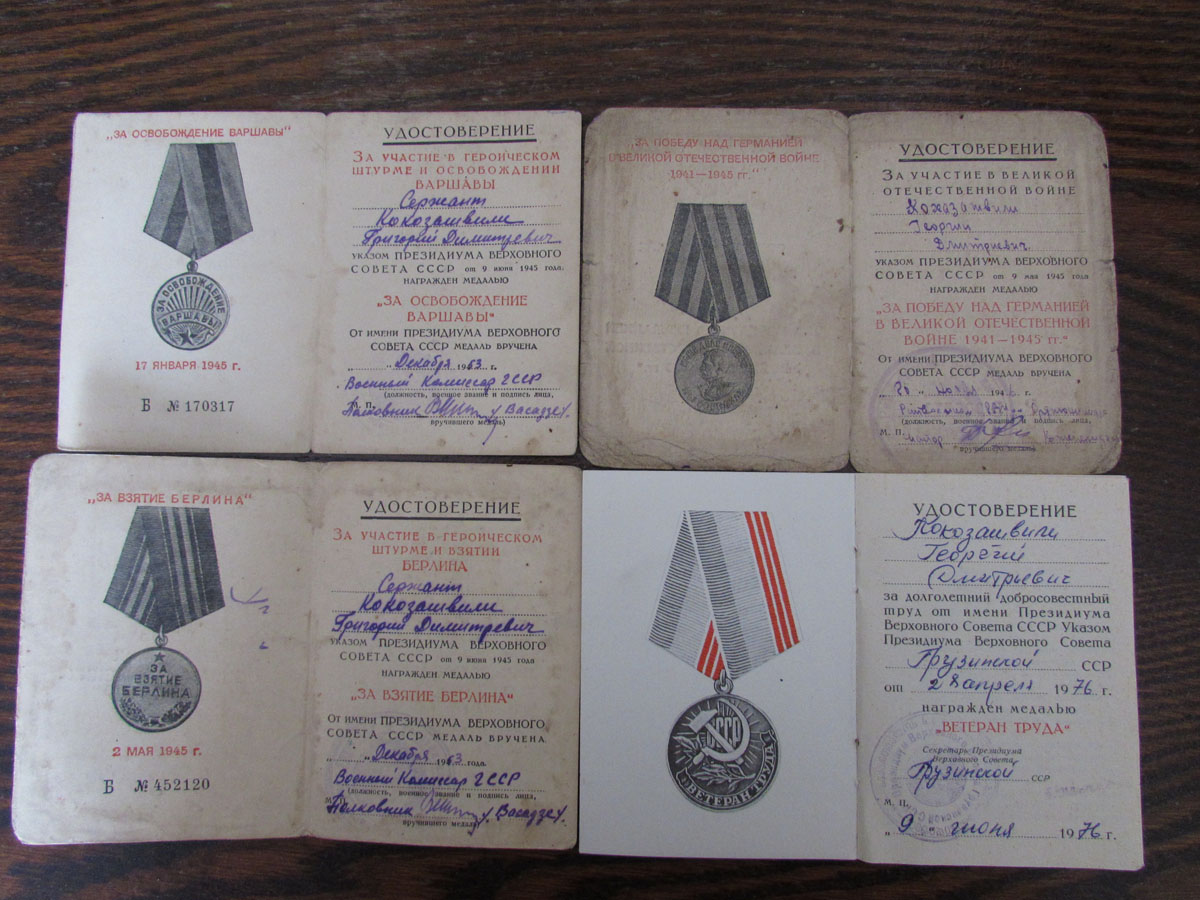 „ЗА ОСВОБОЖДЕНИЕ ВАРШАВЫ“
ЗА ОСВОБОЖДЕНИЕ
ВАРШАВЫ
17 ЯНВАРЯ 1945 г.
Б № 170317
УДОСТОВЕРЕНИЕ
ЗА УЧАСТИЕ В ГЕРОИЧЕСКОМ
ШТУРМЕ И ОСВОБОЖДЕНИИ
ВАРШАВЫ
Сержант
Кокозашвили
Григорий Димитревич
УКАЗОМ ПРЕЗИДИУМА ВЕРХОВНОГО
СОВЕТА СССР от 9 июня 1945 года
НАГРАЖДЕН МЕДАЛЬЮ
„ЗА ОСВОБОЖДЕНИЕ
ВАРШАВЫ“
От имени ПРЕЗИДИУМА ВЕРХОВНОГО
СОВЕТА СССР МЕДАЛЬ ВРУЧЕНА
„ “ Декабря 1963 года.
Военный Комиссар ГССР
(должность, военное звание и подпись лица,
М. П.
Полковник Васадзе
вручившего медаль)
„ЗА ПОБЕДУ НАД ГЕРМАНИЕЙ
В ВЕЛИКОЙ ОТЕЧЕСТВЕННОЙ ВОЙНЕ
1941—1945 гг.“
УДОСТОВЕРЕНИЕ
ЗА УЧАСТИЕ В ВЕЛИКОЙ
ОТЕЧЕСТВЕННОЙ ВОЙНЕ
Георгий
Дмитриевич
УКАЗОМ ПРЕЗИДИУМА ВЕРХОВНОГО
СОВЕТА СССР от 9 мая 1945 года
НАГРАЖДЕН МЕДАЛЬЮ
„ЗА ПОБЕДУ НАД ГЕРМАНИЕЙ
В ВЕЛИКОЙ ОТЕЧЕСТВЕННОЙ
ВОЙНЕ 1941—1945 гг.“
От имени ПРЕЗИДИУМА ВЕРХОВНОГО
СОВЕТА СССР МЕДАЛЬ ВРУЧЕНА
194 г.
(должность, военное звание и подпись лица,
М. П. майор
вручившего медаль)
„ЗА ВЗЯТИЕ БЕРЛИНА“
ЗА
ВЗЯТИЕ
БЕРЛИНА
2 МАЯ 1945 г.
Б № 452120
УДОСТОВЕРЕНИЕ
ЗА УЧАСТИЕ В ГЕРОИЧЕСКОМ
ШТУРМЕ И ВЗЯТИИ
БЕРЛИНА
Сержант
Кокозашвили
Григорий Димитревич
УКАЗОМ ПРЕЗИДИУМА ВЕРХОВНОГО
СОВЕТА СССР от 9 июня 1945 года
НАГРАЖДЕН МЕДАЛЬЮ
„ЗА ВЗЯТИЕ БЕРЛИНА“
От имени ПРЕЗИДИУМА ВЕРХОВНОГО
СОВЕТА СССР МЕДАЛЬ ВРУЧЕНА
„ “ Декабря 1963 года.
Военный Комиссар ГССР
(должность, военное звание и подпись лица,
Полковник Васадзе
вручившего медаль)
СССР
ВЕТЕРАН ТРУДА
УДОСТОВЕРЕНИЕ
Кокозашвили
Георгий
Дмитрьевич
за долголетний добросовестный
труд от имени Президиума
Верховного Совета СССР Указом
Президиума Верховного Совета
Грузинской ССР
от 28 апреля 1976 г.
награжден медалью
„ВЕТЕРАН ТРУДА“
Секретарь Президиума
Верховного Совета
Грузинской ССР
М. П.
„9“ июня 1976 г.